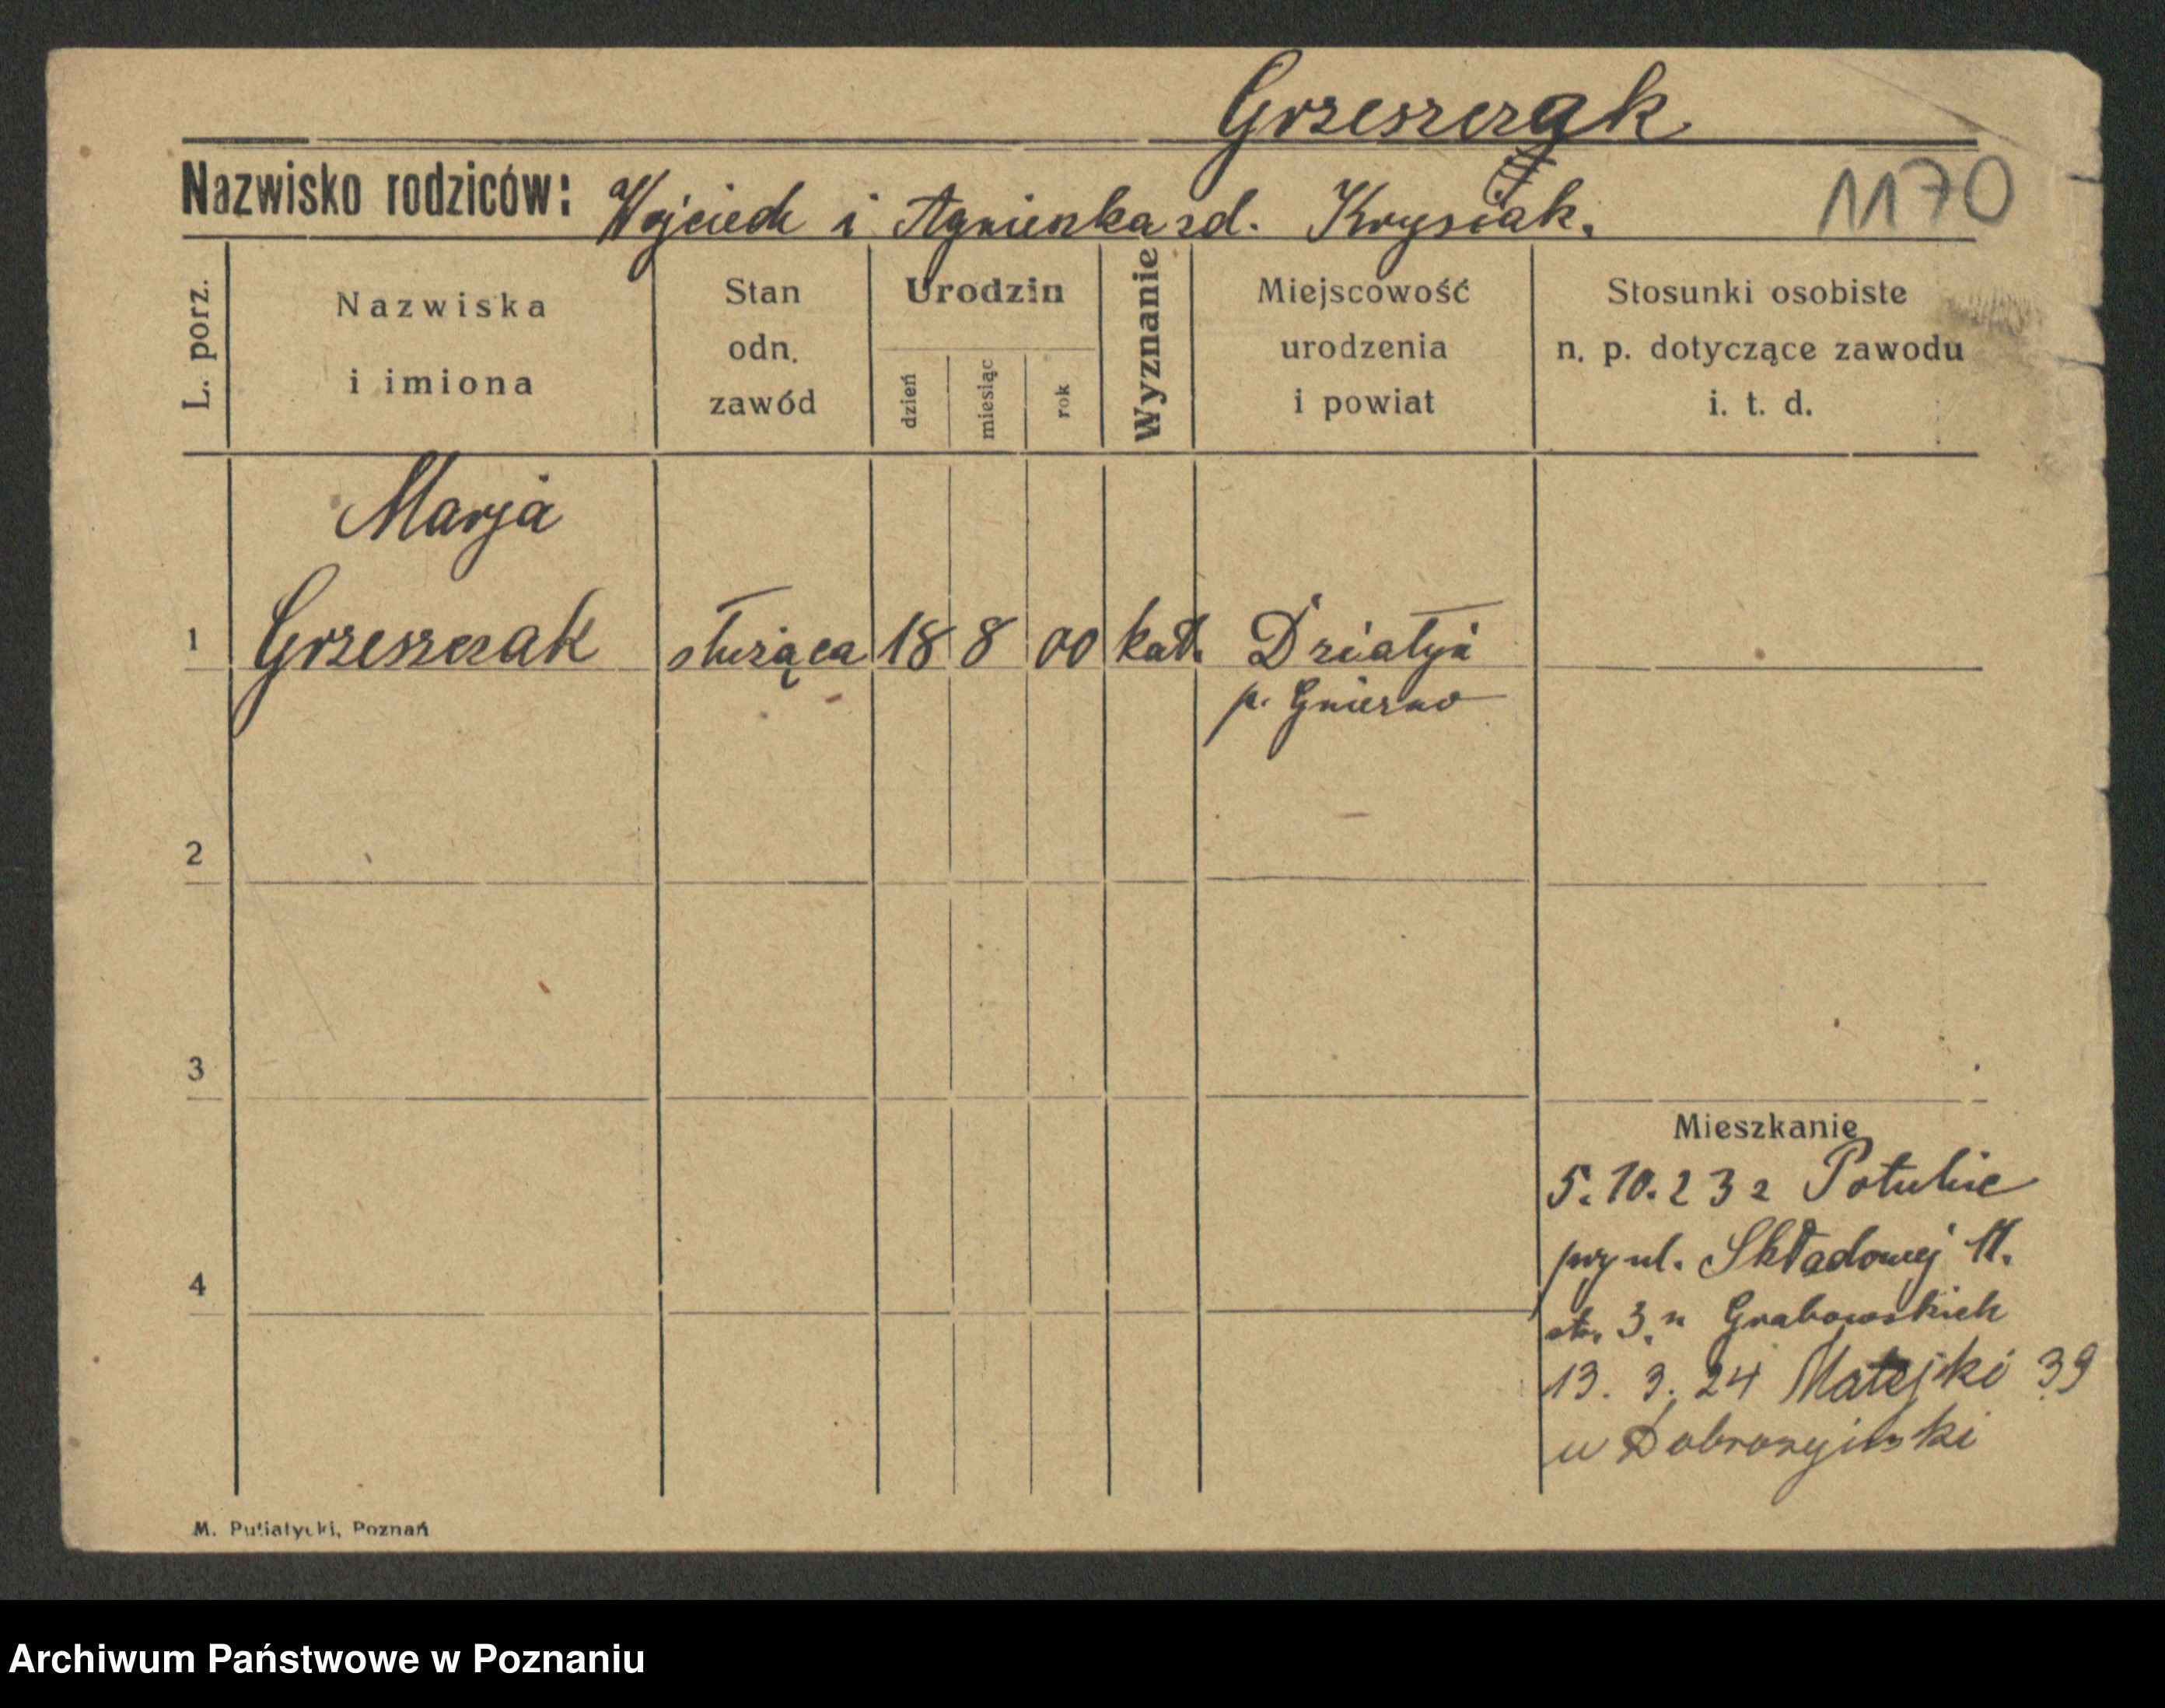 Grzeszczak
Nazwisko rodziców: Wojciech i Agnieszka zd. Krysiak.
1170
L. porz.
Nazwiska
i imiona
Stan
odn.
zawód
Urodzin
dzień
miesiąc
rok
Wyznanie
Miejscowość
urodzenia
i powiat
Stosunki osobiste
n. p. dotyczące zawodu
i. t. d.
Marja
1 Grzeszczak służąca 18 8 00 kat. Działyń
p. Gniezno
2
3
4
Mieszkanie
5. 10. 23 z Potulic
przy ul. Składowej 11.
3. u Grabowskich
13. 3. 24 Matejki 39
u
M. Putiatycki, Poznań
Archiwum Państwowe w Poznaniu